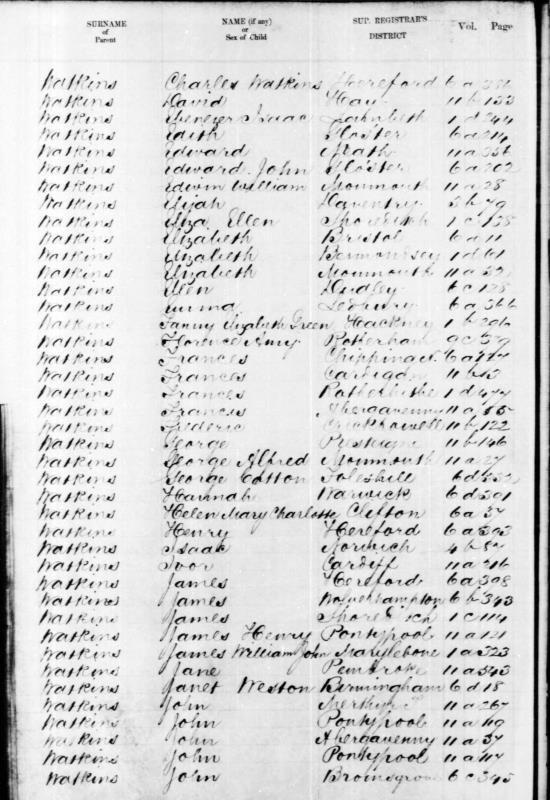 SURNAME of Parent NAME (if any) or Sex of Child SUP. REGISTRAR'S DISTRICT Vol. Page
Watkins Charles Watkins Hereford 6a
Watkins David Hay 11b 133
Watkins Ebenezer Isaac Lambeth 1d 244
Watkins Edith Gloster 6a 214
Watkins Edward Neath 11a
Watkins Edward John Gloster 6a 202
Watkins Edwin William Monmouth 11a 28
Watkins Elijah Daventry 3b 79
Watkins Eliza Ellen Shoreditch 1c
Watkins Elizabeth Bristol 6a 11
Watkins Elizabeth Bermondsey 1d 61
Watkins Elizabeth Monmouth 11a 32
Watkins Ellen Dudley 6c 128
Watkins Emma Ledbury 6a
Watkins Fanny Elizabeth Green Hackney 1b 296
Watkins Florence Amy Rotherham 9c
Watkins Frances 6a
Watkins Frances Cardigan 11b
Watkins Frances Rotherhithe 1d 477
Watkins Francis Abergavenny 11a
Watkins Frederic Crickhowell 11b 122
Watkins George Presteigne 11b 146
Watkins George Alfred Monmouth 11a 27
Watkins George Cotton Foleshill 6d
Watkins Hannah Warwick 6d
Watkins Helen Mary Charlotte Clifton 6a 37
Watkins Henry Hereford 6a
Watkins Isaac Norwich 4b 87
Watkins Ivor Cardiff 11a 216
Watkins James Hereford 6a 398
Watkins James Wolverhampton 6b 343
Watkins James Shoreditch 1c 114
Watkins James Henry Pontypool 11a 121
Watkins James William John Marylebone 1a 323
Watkins Jane Pembroke 11a
Watkins Janet Weston Birmingham 6d 18
Watkins John Merthyr 11a 267
Watkins John Pontypool 11a 119
Watkins John Abergavenny 11a 37
Watkins John Pontypool 11a 117
Watkins John Bromsgrove 6c 345